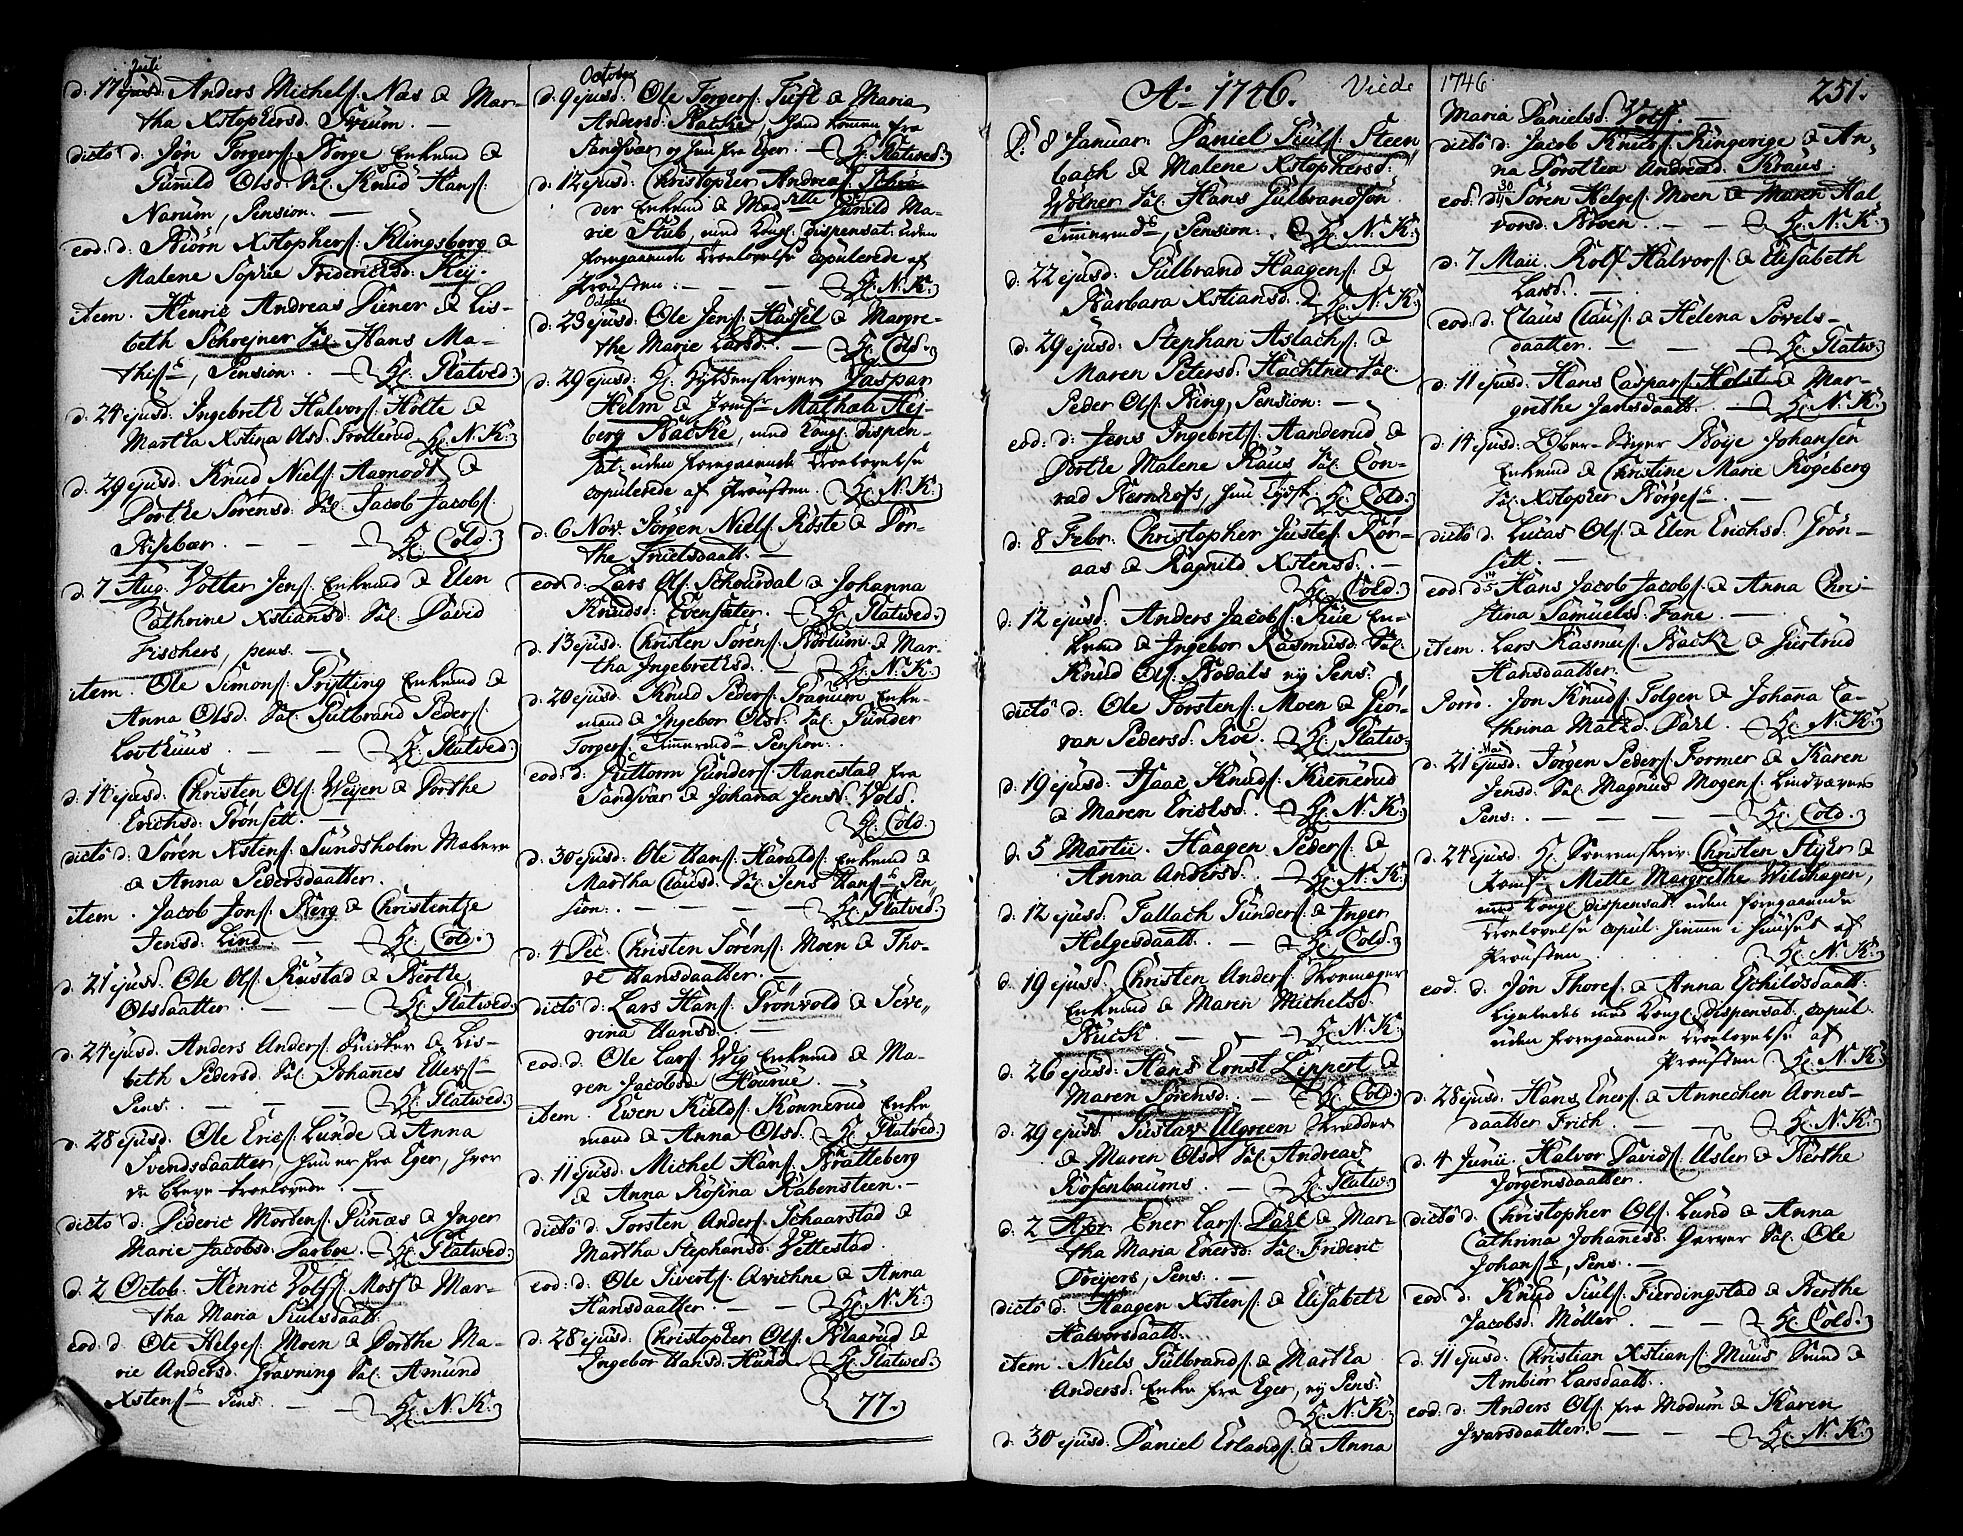 Juli
d: 17 ejusd: Anders Michels: Næs & Mar-
tha Xstophersd:
dicto d: Jøn Torgers: Borge Enkemd &
Gunild Olsd: Sal: Knud Hans:
Narum, Pension. —
eod: d: Biørn Xstophers: Klingsberg &
Malene Sophie Friderichsd: Keÿ-
item. Henric Andreas Diener & Lis-
beth Schrejner Sal: Hans Ma-
this:, Pension. — H: Flatved.
d: 24 ejusd: Ingebreth Halvors: Holte &
Martha Xstina Olsd: Trollerud H: N: K:
d: 29 ejusd: Knud Niels: Aamodt &
Dorthe Sørensd: Sal: Jacob Jacobs:
— — H: Cold.
d: 7 Aug: Wolter Jens: Enkemd & Elen
Cathrine Xstiansd: Sal: David
Fischers, pens. —
item. Ole Simons: Prÿtting Enkemd &
Anna Olsd: Sal: Gulbrand Peders:
— — H: Flatved:
d: 14 ejusd: Christen Ols: Weÿen & Dorthe
Erichsd: Grønsett. —
dicto d: Søren Xstens: Sundsholm
& Anna Pedersdaatter.
item. Jacob Jons: Berg & Christentze
Jensd: Lind. — H: Cold.
d: 21 ejusd: Ole Ols: Rustad & Berthe
Olsdaatter. — — H: Flatved:
d: 24 ejusd: Anders Anders: & Lis-
beth Pedersd: Sal: Johannes Ellefs:
Pens. — — — H: Flatwed:
d: 28 ejusd: Ole Erics: Lunde & Anna
Svendsdaatter, hun er fra Eger, hvor
de bleve troelovede. —
dicto d: Dideric Mortens: Gunnæs & Inger
Marie Jacobsd: Darboe. — H: Flatwed:
d: 2 Octob. Henric Wolfs: Moss & Mar-
tha Maria Juulsdaatt:
eod: d: Ole Helges: Moen & Dorthe Ma-
rie Andersd: Gravning Sal: Amund
Xstens: Pens. — — H: N: K:
October
d: 9 ejusd: Ole Torgers: Tuft & Maria
Andersd: Backe, hand kommen fra
Sandsvær og hun fra Eger. — H: Flatwed:
d: 12 ejusd: Christopher Andreas Schrø-
der Enkemd & Madselle Gunild Ma-
rie Stub, med Kongl: dispensat: uden
foregaaende troelovelse copulerede af
Prousten. — — H: N: K:
Octobr:
d: 23 ejusd: Ole Jens: Hassel & Margre-
the Marie Larsd: — H: Cold.
d: 29 ejusd: H: Hÿttenskriver Jaspar
Helm & Jomfr: Mathala Heÿ-
berg Backe, med Kongl: dispen-
sat: uden foregaaende troelovelse
copulerede af Prousten. H: N: K:
d: 6 Nov: Jørgen Niels: Røste & Dor-
the Truelsdaatt: —
eod: d: Lars Ols: Schoürdal & Johanna
Knudsd: Evensæter. — H: Flatwed.
d: 13 ejusd: Christen Sørens: Børtum & Mar-
tha Ingebrethsd: — H: N: K:
d: 20 ejusd: Knud Peders: Pranum Enke-
mand & Ingebor Olsd: Sal: Gunder
Torgers: Tømmermds Pension.
eod: d: Guttorm Gunders: Aanestad fra
Sandsvær & Johana Jensd: Vold.
H: Cold.
d: 30 ejusd: Ole Hans: Haralds: Enkemd &
Martha Clausd: Sal: Jens Hans: Pen-
sion. — — — H: Flatved:
d: 4 Dec: Christen Sørens: Moen & Tho-
re Hansdaatter. —
dicto d: Lars Hans: Grønvold & Seve-
rina Hansd: —
eod: d: Ole Lars: Wig Enkemd & Ma-
ren Jacobsd: Hourue. —
item. Ewen Kields: Konnerud Enke-
mand & Anna Olsd: H: Flatved:
d: 11 ejusd: Michel Hans: Bratteberg
& Anna Rosina Rabensteen. —
dicto d: Torsten Anders: Schaarstad &
Martha Stephansd: Vettestad.
eod: d: Ole Siverts: Qvichne & Anna
Hansdaatter. — — H: N: K:
d: 28 ejusd: Christopher Ols: Blaarud &
Ingebor Hansd: Hund. H: Flatwed.
77.
Ao 1746. Viede
D: 8 Januar: Daniel Juuls: Steen-
bach & Malene Xstophersd:
Wølner Sal: Hans Gulbrandsøn
Tømermds, Pension. H: N: K:
d: 22 ejusd: Gulbrand Haagens: &
Barbara Xstiansd: H: N: K:
d: 29 ejusd: Stephan Aslachs: &
Maren Petersd: Hachtner Sal:
Peder Ols: Ring, Pension: —
eod: d: Jens Ingebrets: Aanderud &
Dorthe Malene Raus Sal: Con-
rad Bernhofs, hun H: Cold.
d: 8 Febr: Christopher Justes: Rør-
aas & Ragnild Xstensd: —
H: Cold.
d: 12 ejusd: Anders Jacobs: Rue En-
kemd & Ingebor Rasmusd: Sal:
Knud Ols: Bodals nÿ Pens:
dicto d: Ole Torstens: Moen & Giø-
ran Pedersd: Roe. — H: Flatw.
d: 19 ejusd: Isaac Knuds: Kiennerud
& Maren Ericksd: — H: N: K:
d: 5 Martii. Haagen Peders: &
Anna Andersd: — H: N: K:
d: 12 ejusd: Tallach Gunders: & Inger
Helgesdaatt: — H: Cold.
d: 19 ejusd: Christen Anders: Skoemager
Enkemd & Maren Michelsd:
Buck — — H: N: K:
d: 26 ejusd: Hans Ernst Lippert &
Maren Sørensd: — H: Cold.
d: 29 ejusd: Gustav Ulgreen Skredder
& Maren Olsd: Sal: Andreas
Rosenbaums. — H: Flatw:
d: 2 Apr: Ener Lars: Dahl & Mar-
tha Maria Enersd: Sal: Frideric
Dreÿers, Pens: —
dicto d: Haagen Xstens: & Elisabeth
Halvorsdaatt:
item. Niels Gulbrands: & Martha
Andersd: Enke fra Eger, nÿ Pens:
H: N: K:
d: 30 ejusd: Daniel Erlands: & Anna
1746 251.
Maria Danielsd: Wolf. —
dicto d: Jacob Knuds: Ringerige & An-
na Dorthea Andread: Kraus.
eod: d: 30 Søren Helges: Moen & Maren Hal-
vorsd: Broen. — — H: N: K:
d: 7 Maii. Rolf Halvors: & Elisabeth
Larsd: —
eod: d: Claus Claus: & Helena Povels-
daatter. — — — H: Flatw:
d: 11 ejusd: Hans Caspars: Holst & Mar-
grethe Jansdaatt: — H: N: K:
d: 14 ejusd: Ober-Stiger Boÿe Johansen
Enkemd & Christine Marie Rogeberg
Sal: Xstopher Børges: —
dicto d: Lucas Ols: & Elen Erichsd: Grøn-
sett. —
eod: d: 14 Hans Jacob Jacobs: & Anna Chri-
stina Samuelsd: Fane. —
item. Lars Rasmus: Backe & Giertrud
Hansdaatter.
Jon Knuds: Tolgen & Johana Ca-
thrina Mathd: Dahl. — H: N: K:
Maj
d: 21 ejusd: Jørgen Peders: Former & Karen
Jensd: Sal: Magnus Mogens:
Pens: — — — H: Cold.
d: 24 ejusd: H: Sorenskriv: Christen Stÿhr &
Jomfr: Mette Margrethe Wildhagen,
med Kongl: dispensat: uden foregaaende
troelovelse copul: hiemme i huuset af
Prousten. . . . H: N: K:
eod: d: Jøn Thores: & Anna Eschildsdaatt:
ligeledes med Kongl: dispensat: copul:
uden foregaaende troelovelse af
Prousten H: N: K:
d: 28 ejusd: Hans Eners: & Annechen Arnes-
daatter Frich. — — H: N: K:
d: 4 Junii. Halvor Davids: Usler & Berthe
Jørgensdaatter.
dicto d: Christopher Ols: Lund & Anna
Cathrina Johanesd: Garver Sal: Ole
Johans:, Pens: —
eod: d: Knud Juuls: Fierdingstad & Berthe
Jacobsd: Møller. — — H: Cold.
d: 11 ejusd: Christian Xstians: Muus Svend &
Ambiør Larsdaatt:
eod: d: Anders Ols: fra Modum & Karen
Ivarsdaatter. — — H: N: K: